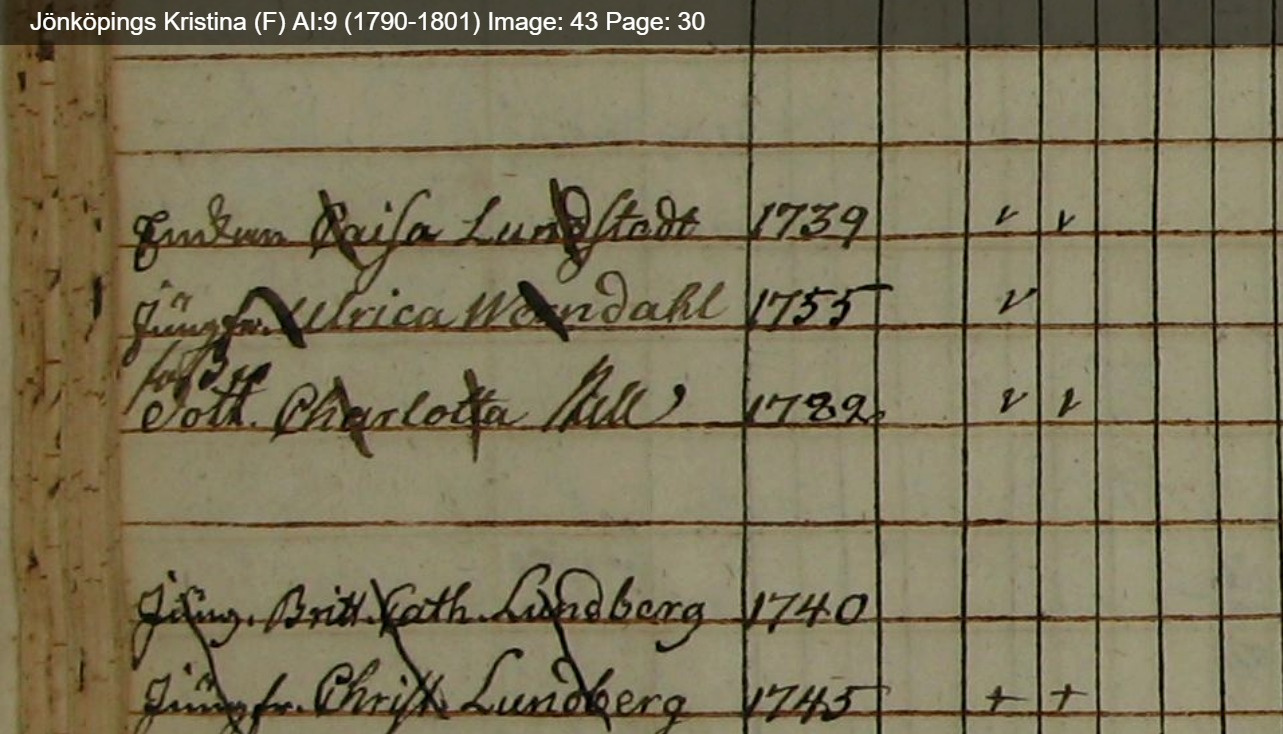 Jönköpings Kristina (F) AI:9 (1790-1801) Image: 43 Page: 30
Enkan Caisa Lundstedt 1739 v v
Jungfr. Ulrica Worndahl 1755 v
Dott. Charlotta 1782. v v
Jung. Britt. Cath. Lundberg 1740
Jungfr. Christ. Lundberg 1745 + +